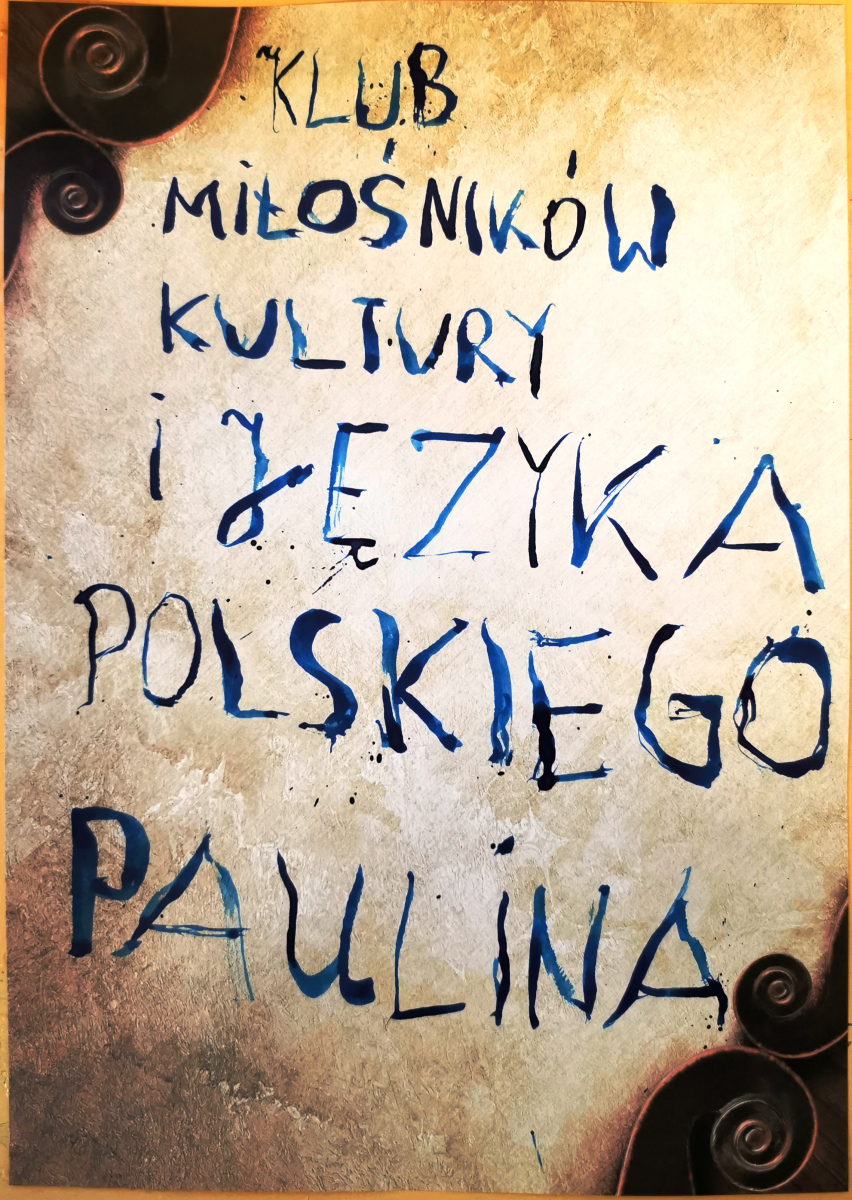 KLUB
MiŁOŚNIKÓW
KULTURY
i JĘZYKA
POLSKIEGO
PAULiNA